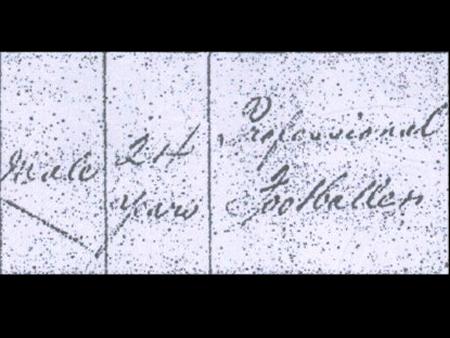 Male
24
years
Professional
Footballer